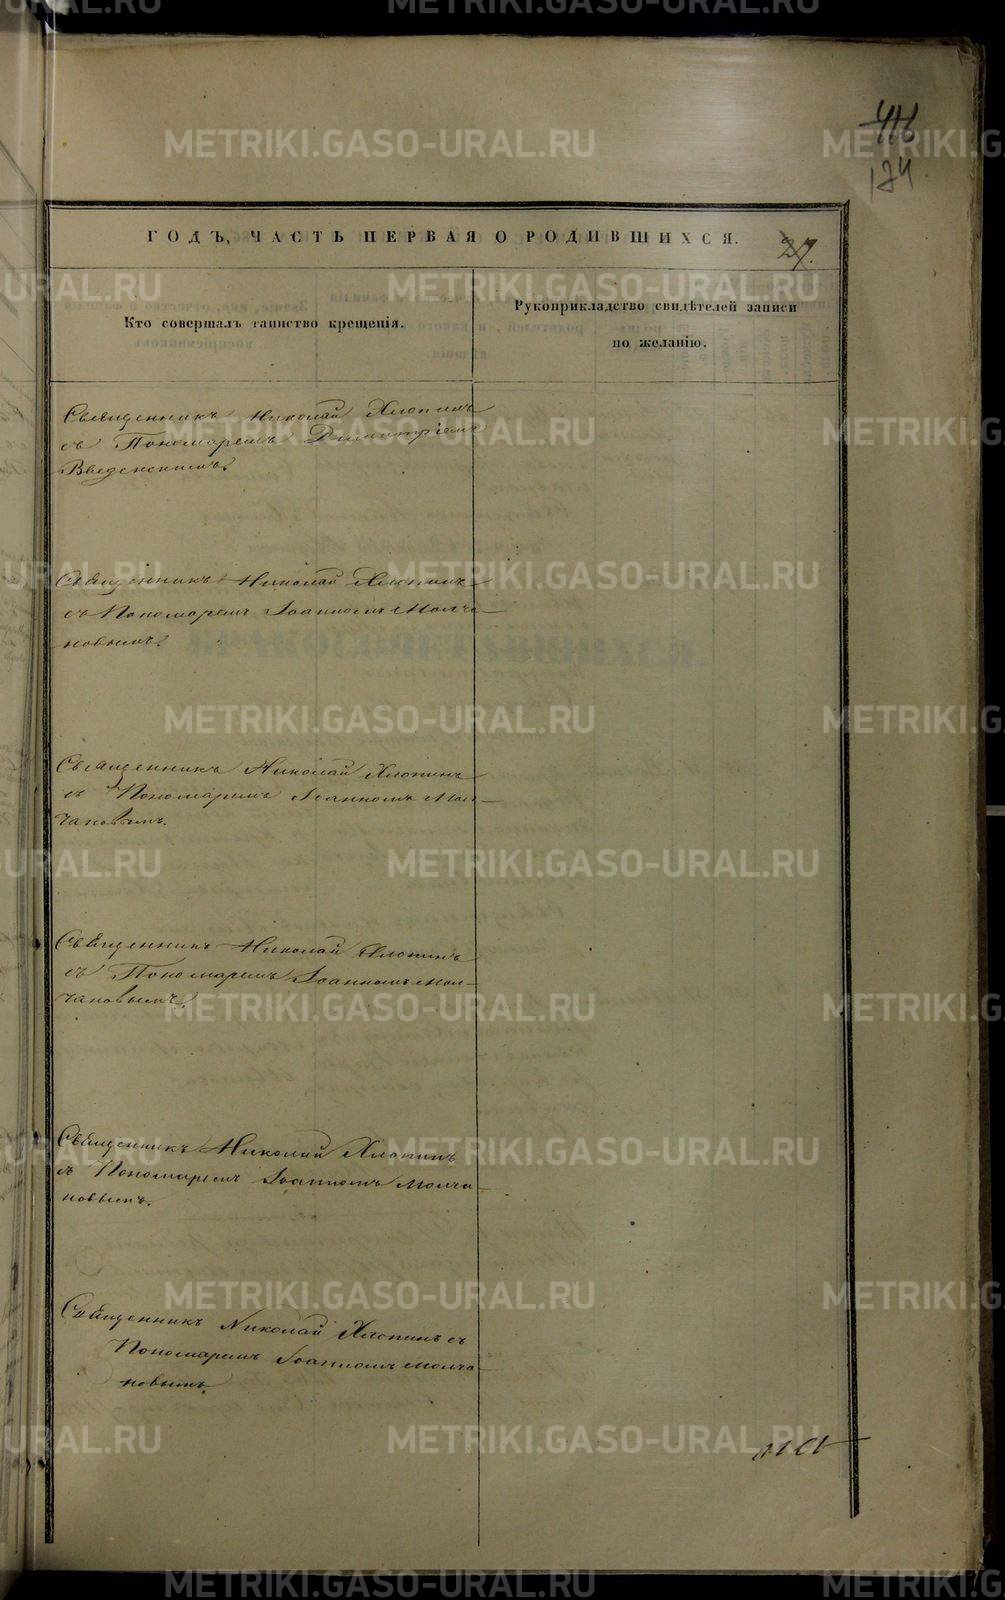 416
124
ГОДЪ, ЧАСТЬ ПЕРВАЯ О РОДИВШИХСЯ.
27.
Кто совершалъ таинство крещенія.
Рукоприкладство свидѣтелей записи
по желанію.
Священникъ Николай Хлопинъ
съ Пономаремъ Димитріемъ
Введенскимъ.
Священникъ Николай Хлопинъ
съ Пономаремъ Іоанномъ Молча-
новымъ.
Священникъ Николай Хлопинъ
съ Пономаремъ Іоанномъ Мол-
чановымъ.
Священникъ Николай Хлопинъ
съ Пономаремъ Іоанномъ Мол-
чановымъ.
Священникъ Николай Хлопинъ
съ Пономаремъ Іоанномъ Молча-
новымъ.
Священникъ Николай Хлопинъ съ
Пономаремъ Іоанномъ Молча-
новымъ.
METRIKI.GASO-URAL.RU